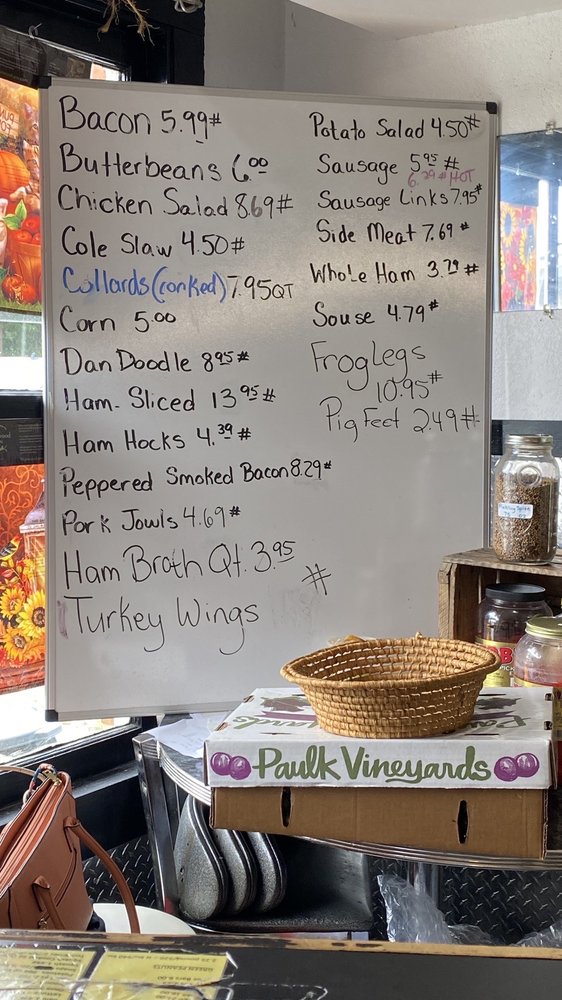 Bacon 5.99#
Butterbeans 6.00
Chicken Salad 8.69#
Cole Slaw 4.50#
Collards (conked) 7.95QT
Corn 5.00
Dan Doodle 8.95 #
Ham - Sliced 13.95 #
Ham Hocks 4.39 #
Peppered Smoked Bacon 8.29#
Pork Jowls 4.69#
Ham Broth Qt. 3.95
#
Turkey Wings
Potato Salad 4.50#
Sausage 5.95 #
6.29 # HOT
Sausage Links 7.95#
Side Meat 7.69 #
Whole Ham 3.79 #
Souse 4.79#
Frog Legs
10.95#
Pig Feet 2.49#
Paulk Vineyards
GREEN PEANUTS